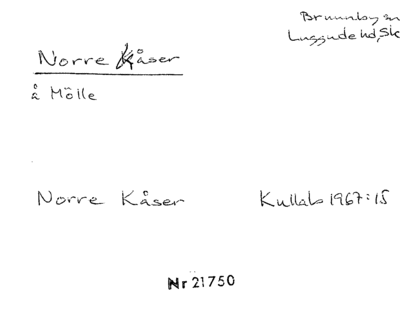 Brunnby sn
Luggude hd, Sk
Norre Kåser
å Mölle
Norre Kåser Kullab 1967:15
Nr 21750